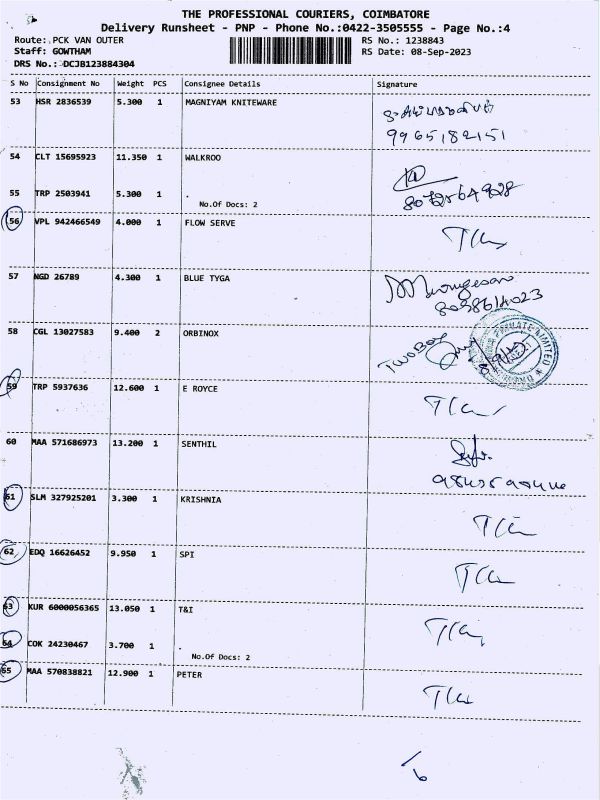 THE PROFESSIONAL COURIERS, COIMBATORE
Delivery Runsheet - PNP - Phone No.:0422-3505555 - Page No.:4
Route: PCK VAN OUTER RS No.: 1238843
Staff: GOWTHAM RS Date: 08-Sep-2023
DRS No.: DCJB123884304
S No Consignment No Weight PCS Consignee Details Signature
53 HSR 2836539 5.300 1 MAGNIYAM KNITEWARE
9965182151
54 CLT 15695923 11.350 1 WALKROO
55 TRP 2503941 5.300 1 .
No.Of Docs: 2
56 VPL 942466549 4.000 1 FLOW SERVE
57 NGD 26789 4.300 1 BLUE TYGA
58 CGL 13027583 9.400 2 ORBINOX
Two Box
PRIVATE LIMITED
59 TRP 5937636 12.600 1 E ROYCE
60 MAA 571686973 13.200 1 SENTHIL
61 SLM 327925201 3.300 1 KRISHNIA
62 EDQ 16626452 9.950 1 SPI
63 KUR 6000056365 13.050 1 T&I
64 COK 24230467 3.700 1 .
No.Of Docs: 2
65 MAA 570838821 12.900 1 PETER